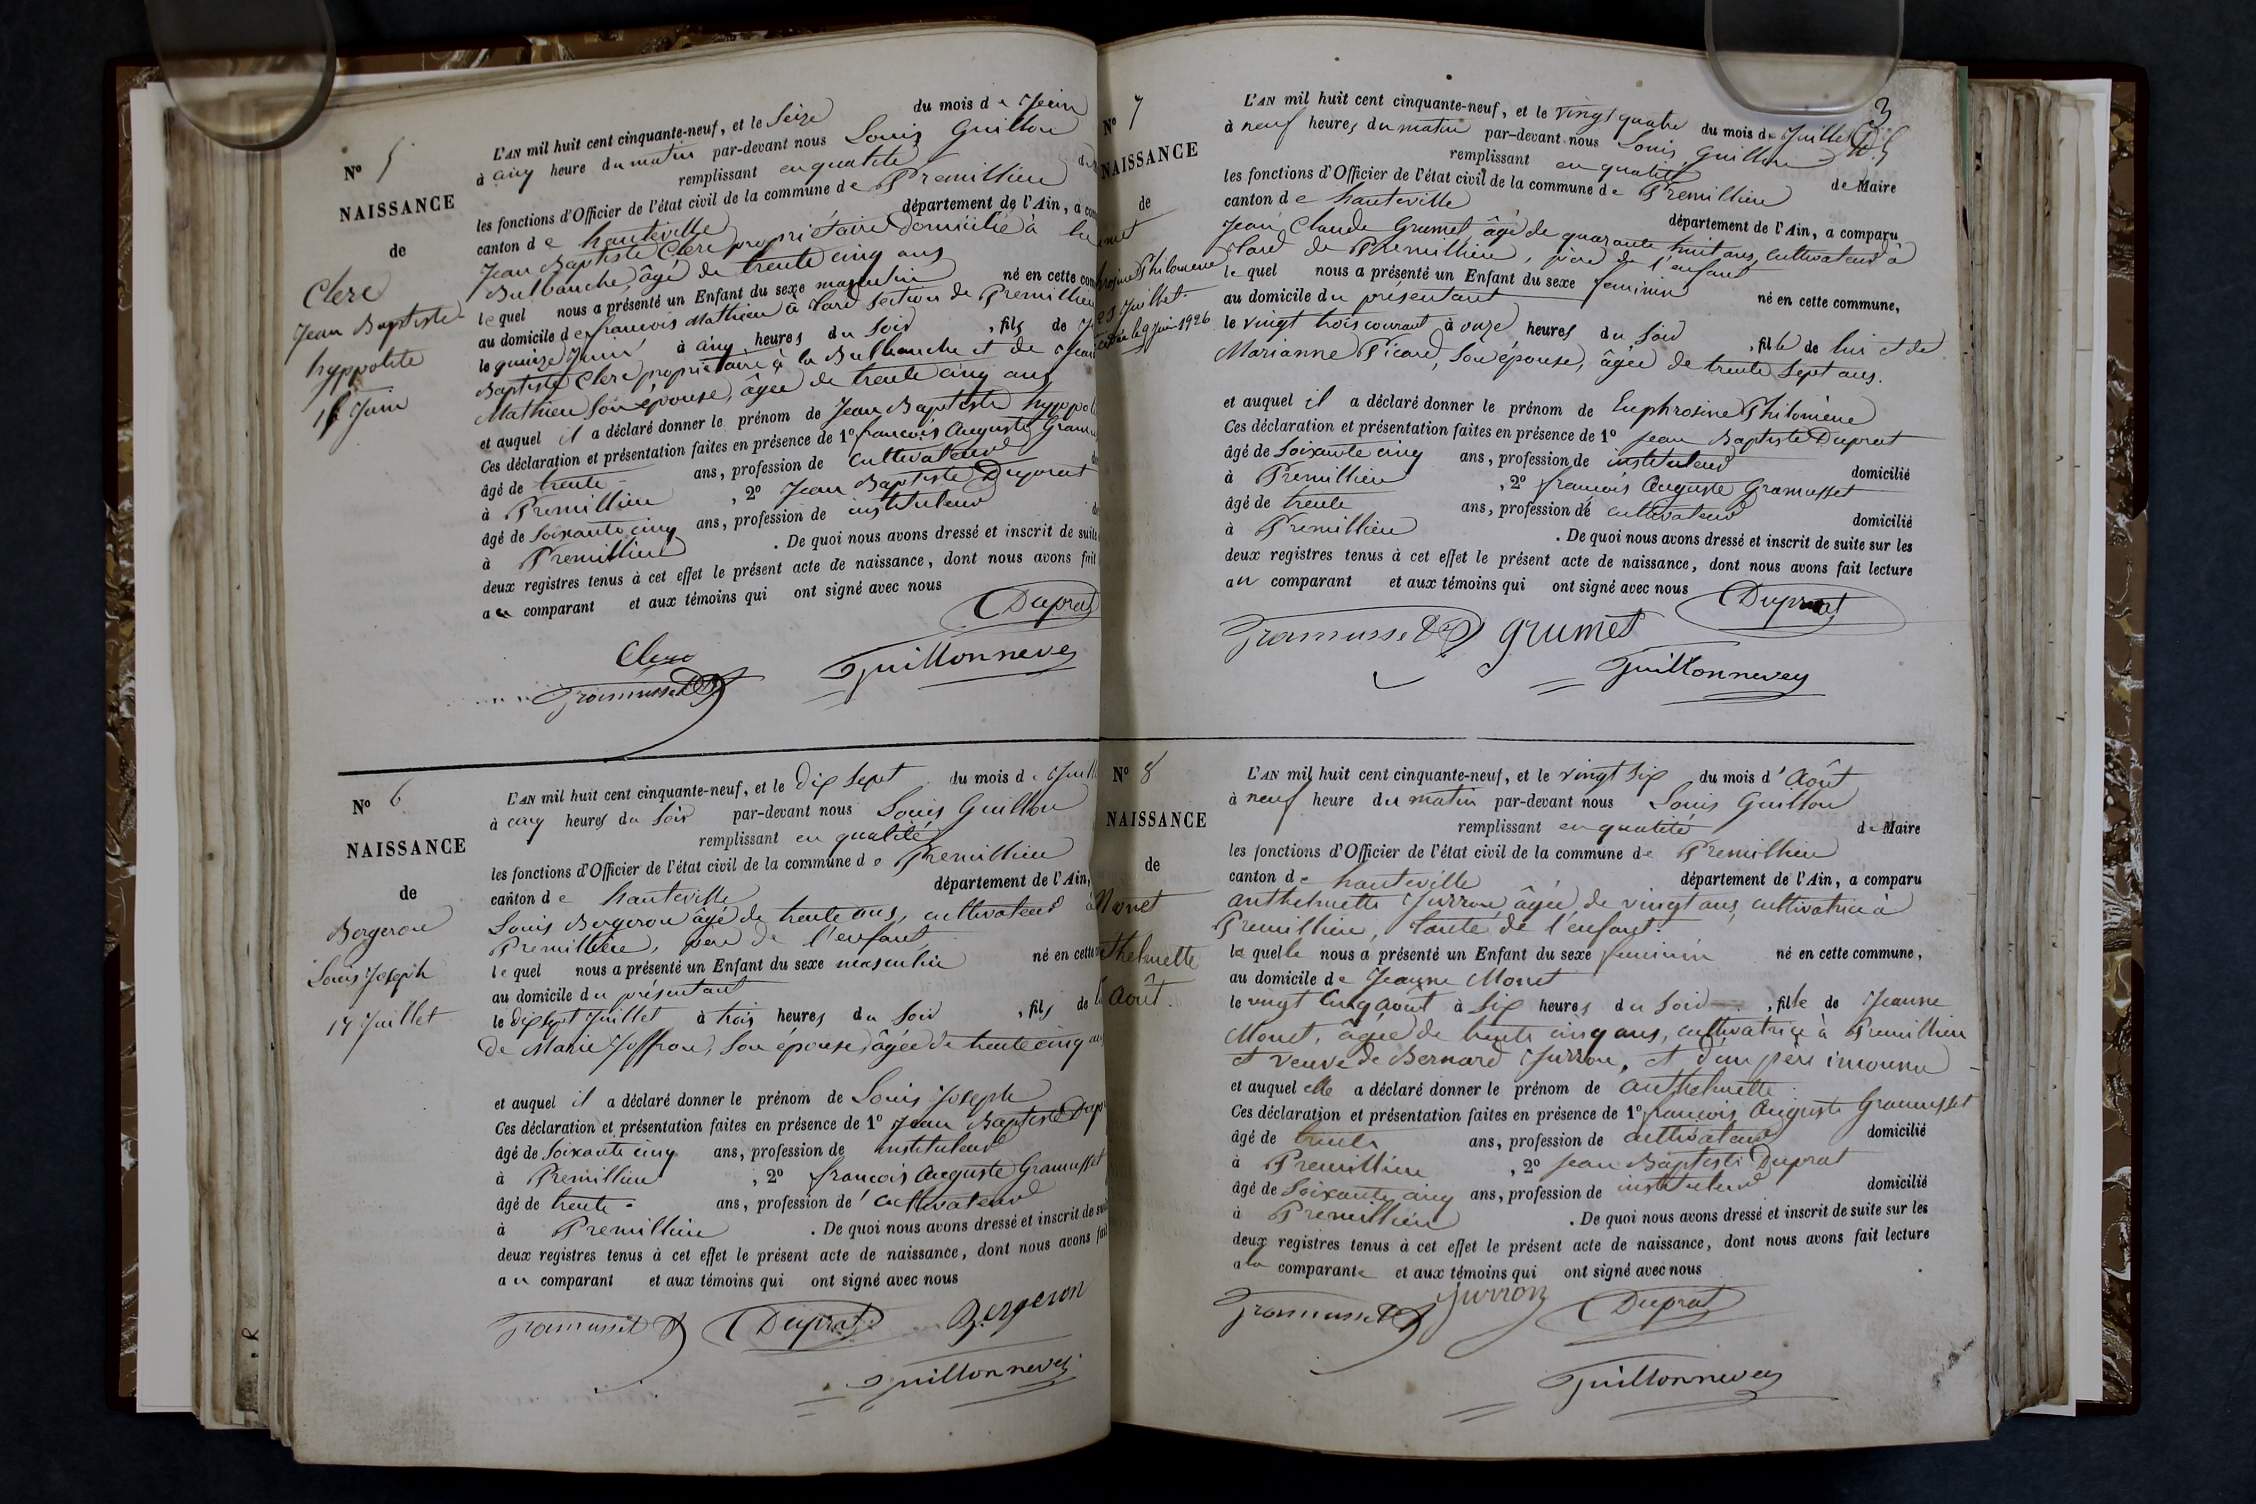 N° 5
NAISSANCE
de
Clerc
Jean Baptiste
hyppolite
15 Juin
L'AN mil huit cent cinquante-neuf, et le Seize du mois de Juin
à cinq heure du matin par-devant nous Louis Guillon
remplissant en qualité
les fonctions d'Officier de l'état civil de la commune de Premillieu
canton de hauteville département de l'Ain, a com
Jean Baptiste Clerc propriétaire domicilié à la
Bulbanche, âgé de trente cinq ans
lequel nous a présenté un Enfant du sexe masculin né en cette com
au domicile de françois Mathieu à Lard section de Premillieu
le quinze Juin à cinq heures du Soir, fils de
Baptiste Clerc propriétaire à la Bulbanche et de
Mathieu son épouse, âgée de trente cinq ans
et auquel il a déclaré donner le prénom de Jean Baptiste hyppol
Ces déclaration et présentation faites en présence de 1° françois Auguste Gramu
âgé de trente ans, profession de cultivateur
à Premillieu, 2° Jean Baptiste Duprat
âgé de Soixante cinq ans, profession de instituteur
à Premillieu. De quoi nous avons dressé et inscrit de suite
deux registres tenus à cet effet le présent acte de naissance, dont nous avons fait
au comparant et aux témoins qui ont signé avec nous
Duprat
Clerc
Guillonneve
Gramusset
N° 6
NAISSANCE
de
Bergeron
Louis Joseph
17 Juillet
L'AN mil huit cent cinquante-neuf, et le dix Sept du mois de Juill
à cinq heures du Soir par-devant nous Louis Guillon
remplissant en qualité
les fonctions d'Officier de l'état civil de la commune de Premillieu
canton de hauteville département de l'Ain,
Louis Bergeron âgé de trente ans, cultivateur à
Premillieu, père de l'enfant
lequel nous a présenté un Enfant du sexe masculin né en cette
au domicile du présentant
le dix sept Juillet à trois heures du Soir, fils de
de Marie Joffron, Son épouse, âgée de trente cinq an
et auquel il a déclaré donner le prénom de Louis Joseph
Ces déclaration et présentation faites en présence de 1° Jean Baptiste Dup
âgé de Soixante cinq ans, profession de instituteur
à Premillieu, 2° françois Auguste Gramusset
âgé de trente ans, profession de cultivateur
à Premillieu. De quoi nous avons dressé et inscrit de sui
deux registres tenus à cet effet le présent acte de naissance, dont nous avons fai
au comparant et aux témoins qui ont signé avec nous
Gramusset Duprat Bergeron
Guillonnevey
3
N° 7
NAISSANCE
de
met
hrosine Philomene
23 Juillet
le 9 Juin 1926
L'AN mil huit cent cinquante-neuf, et le vingt quatre du mois de Juillet
à neuf heures du matin par-devant nous Louis Guillon
remplissant en qualité de Maire
les fonctions d'Officier de l'état civil de la commune de Premillieu
canton de hauteville département de l'Ain, a comparu
Jean Claude Grumet âgé de quarante huit ans, cultivateur à
Lard de Premillieu, père de l'enfant
lequel nous a présenté un Enfant du sexe feminin né en cette commune,
au domicile du présentant
le vingt trois courant à onze heures du Soir, fille de lui et de
Marianne Picard, Son épouse, âgée de trente Sept ans.
et auquel il a déclaré donner le prénom de Euphrosine Philomène
Ces déclaration et présentation faites en présence de 1° Jean Baptiste Duprat
âgé de Soixante cinq ans, profession de instituteur domicilié
à Premillieu, 2° françois Auguste Gramusset
âgé de trente ans, profession de cultivateur domicilié
à Premillieu. De quoi nous avons dressé et inscrit de suite sur les
deux registres tenus à cet effet le présent acte de naissance, dont nous avons fait lecture
au comparant et aux témoins qui ont signé avec nous
Duprat
Gramusset grumet
Guillonnevey
N° 8
NAISSANCE
de
Monet
thelmette
Août.
L'AN mil huit cent cinquante-neuf, et le vingt Six du mois d'Août
à neuf heure du matin par-devant nous Louis Guillon
remplissant en qualité de Maire
les fonctions d'Officier de l'état civil de la commune de Premillieu
canton de hauteville département de l'Ain, a comparu
anthelmette Jurron, âgée de vingt ans, cultivatrice à
Premillieu, tante de l'enfant.
laquelle nous a présenté un Enfant du sexe feminin né en cette commune,
au domicile de Jeanne Monet
le vingt Cinq août à Six heures du Soir, fille de Jeanne
Monet, âgée de trente cinq ans, cultivatrice à Premillieu
et veuve de Bernard Jurron, et d'un père inconnu
et auquel elle a déclaré donner le prénom de anthelmette
Ces déclaration et présentation faites en présence de 1° françois Auguste Gramusset
âgé de trente ans, profession de cultivateur domicilié
à Premillieu, 2° Jean Baptiste Duprat
âgé de Soixante cinq ans, profession de instituteur domicilié
à Premillieu. De quoi nous avons dressé et inscrit de suite sur les
deux registres tenus à cet effet le présent acte de naissance, dont nous avons fait lecture
a la comparante et aux témoins qui ont signé avec nous
Jurron
Gramusset Duprat
Guillonnevey